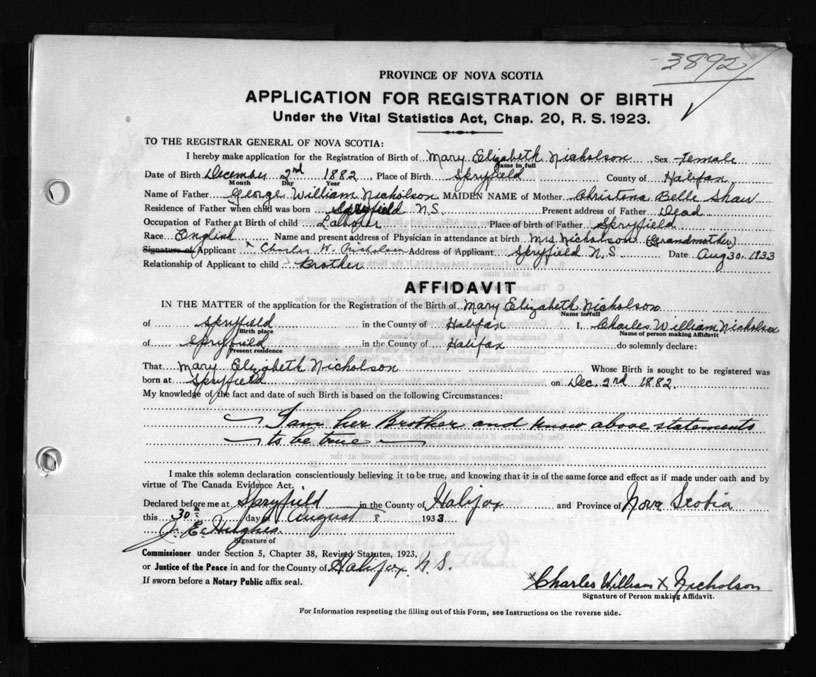 3892
PROVINCE OF NOVA SCOTIA
APPLICATION FOR REGISTRATION OF BIRTH
Under the Vital Statistics Act, Chap. 20, R. S. 1923.
TO THE REGISTRAR GENERAL OF NOVA SCOTIA:
I hereby make application for the Registration of Birth of Mary Elizabeth Nicholson Sex female
Name in full
Date of Birth December 2nd 1882 Place of Birth Spryfield County of Halifax
Month Day Year
Name of Father George William Nicholson MAIDEN NAME of Mother Christena Belle Shaw
Residence of Father when child was born Spryfield N.S. Present address of Father Dead
Occupation of Father at Birth of child Laborer Place of birth of Father Spryfield
Race English Name and present address of Physician in attendance at birth Mrs Nicholson (Grandmother)
Signature of Applicant Charles W. Nicholson Address of Applicant Spryfield N.S. Date Aug 30, 1933
Relationship of Applicant to child Brother
AFFIDAVIT
IN THE MATTER of the application for the Registration of the Birth of Mary Elizabeth Nicholson
Name in full
of Spryfield in the County of Halifax I, Charles William Nicholson
Birth place Name of person making Affidavit
of Spryfield in the County of Halifax do solemnly declare:
Present residence
That Mary Elizabeth Nicholson Whose Birth is sought to be registered was
born at Spryfield on Dec. 2nd 1882.
My knowledge of the fact and date of such Birth is based on the following Circumstances:
I am her Brother and know above statements
to be true
I make this solemn declaration conscientiously believing it to be true, and knowing that it is of the same force and effect as if made under oath and by
virtue of The Canada Evidence Act.
Declared before me at Spryfield in the County of Halifax and Province of Nova Scotia
this 30 day of August 1933
J. E. Hughes
Signature of
Commissioner under Section 5, Chapter 38, Revised Statutes, 1923,
or Justice of the Peace in and for the County of Halifax N.S.
If sworn before a Notary Public affix seal.
Charles William X Nicholson
Signature of Person making Affidavit.
For Information respecting the filling out of this Form, see Instructions on the reverse side.